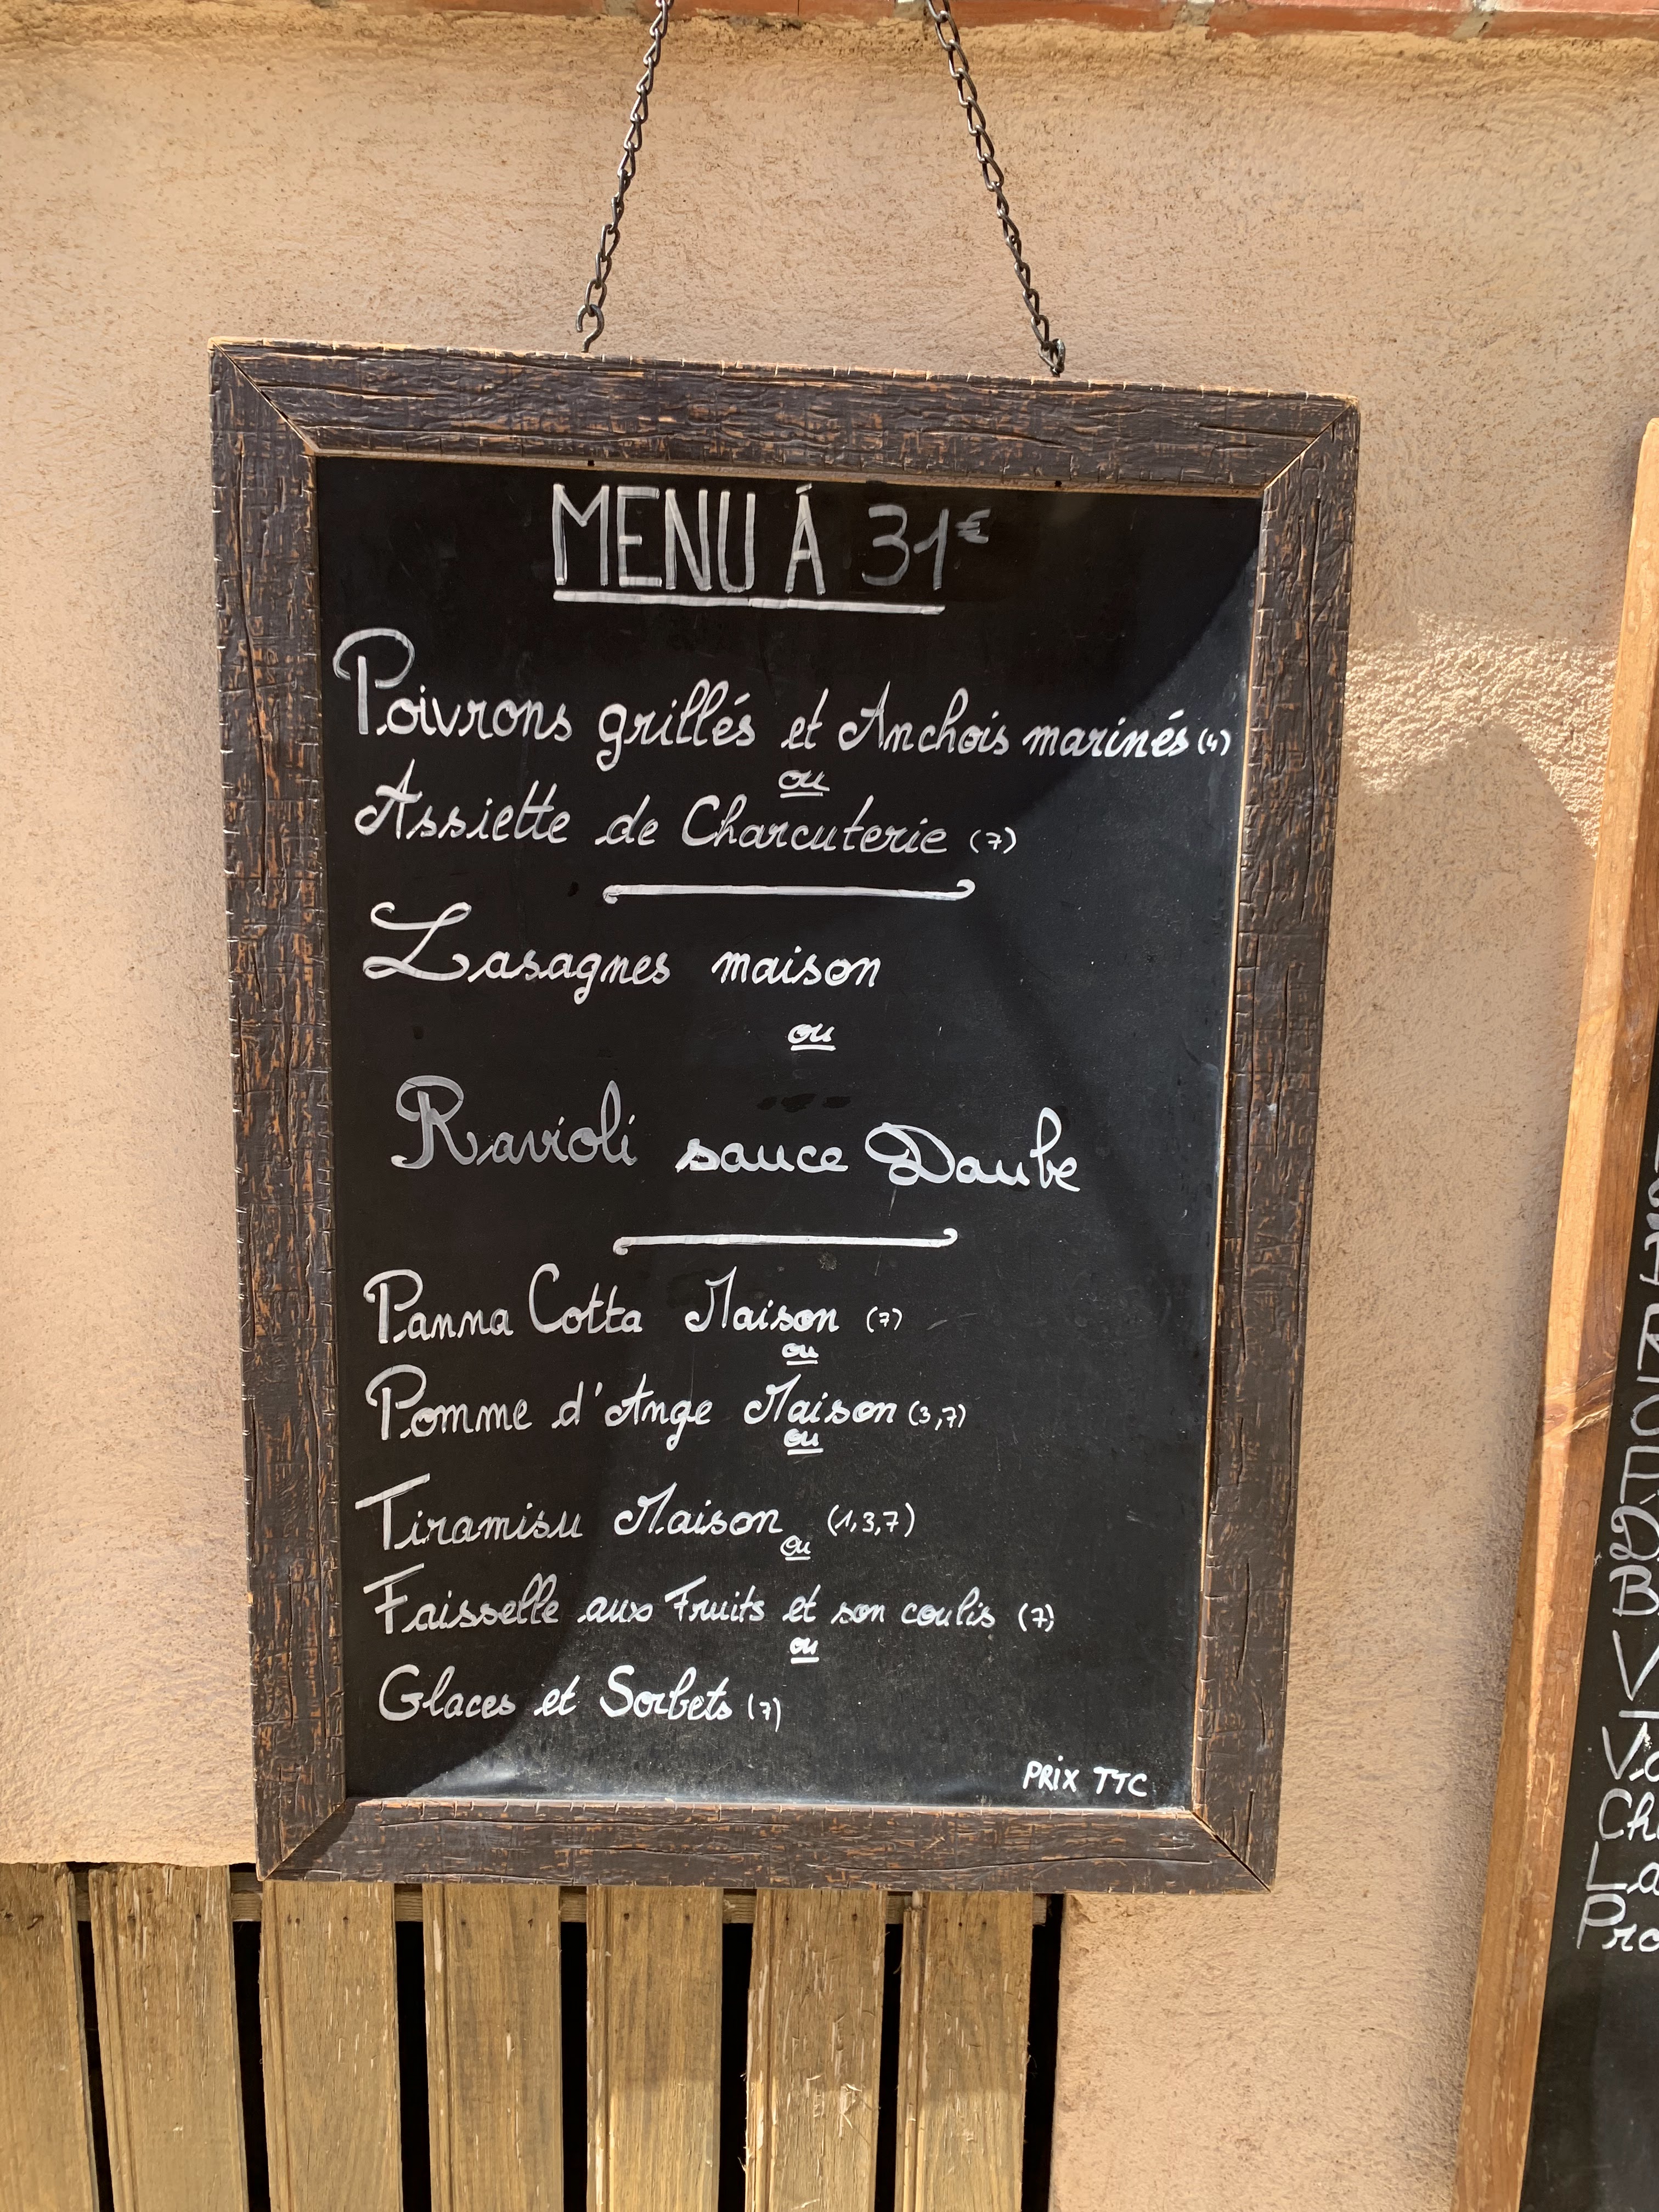 MENU Á 31€
Poivrons grillés et Anchois marinés (4)
ou
Assiette de Charcuterie (7)
Lasagnes maison
ou
Ravioli sauce Daube
Panna Cotta Maison (7)
ou
Pomme d'Ange Maison (3,7)
ou
Tiramisu Maison (1,3,7)
ou
Faisselle aux Fruits et son coulis (7)
ou
Glaces et Sorbets (7)
PRIX TTC